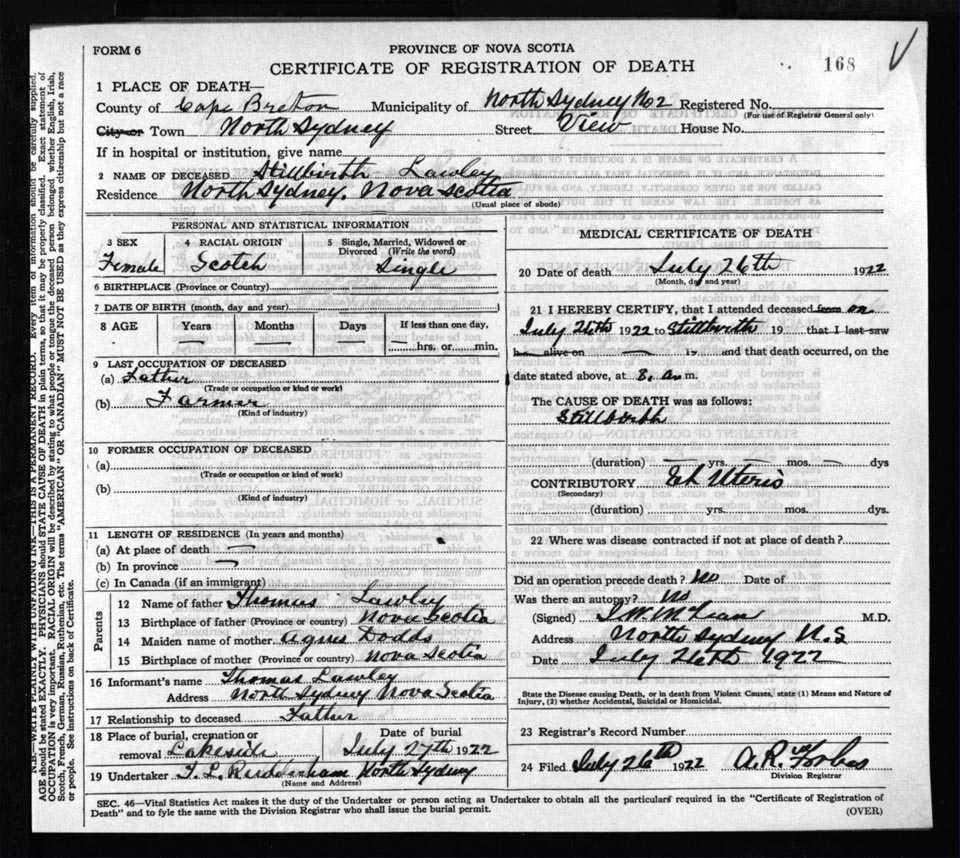 FORM 6
PROVINCE OF NOVA SCOTIA
CERTIFICATE OF REGISTRATION OF DEATH
168
1 PLACE OF DEATH—
County of Cape Breton Municipality of North Sydney No 2 Registered No.
(For use of Registrar General only)
City or Town North Sydney Street View House No.
If in hospital or institution, give name
2 NAME OF DECEASED Stillbirth Lawley
Residence North Sydney. Nova Scotia
(Usual place of abode)
PERSONAL AND STATISTICAL INFORMATION
3 SEX 4 RACIAL ORIGIN 5 Single, Married, Widowed or Divorced (Write the word)
Female Scotch Single
6 BIRTHPLACE (Province or Country)
7 DATE OF BIRTH (month, day and year)
8 AGE Years Months Days If less than one day,
— — — — hrs. or min.
9 LAST OCCUPATION OF DECEASED
(a) Father
(Trade or occupation or kind or work)
(b) Farmer
(Kind of industry)
10 FORMER OCCUPATION OF DECEASED
(a)
(Trade or occupation or kind of work)
(b)
(Kind of industry)
11 LENGTH OF RESIDENCE (In years and months)
(a) At place of death —
(b) In province —
(c) In Canada (if an immigrant)
Parents
12 Name of father Thomas Lawley
13 Birthplace of father (Province or country) Nova Scotia
14 Maiden name of mother Agnes Dodds
15 Birthplace of mother (Province or country) Nova Scotia
16 Informant's name Thomas Lawley
Address North Sydney Nova Scotia
17 Relationship to deceased Father
18 Place of burial, cremation or removal Lakeside Date of burial July 27th 1922
19 Undertaker North Sydney
(Name and Address)
MEDICAL CERTIFICATE OF DEATH
20 Date of death July 26th 1922
(Month, day and year)
21 I HEREBY CERTIFY, that I attended deceased from on
July 26th 1922 to Stillbirth 19 that I last saw
h alive on — 19 and that death occurred, on the
date stated above, at 8. a.m.
The CAUSE OF DEATH was as follows:
Stillbirth
(duration) yrs. mos. dys
CONTRIBUTORY Uteris
(Secondary)
(duration) yrs. mos. dys.
22 Where was disease contracted if not at place of death?
Did an operation precede death? No Date of
Was there an autopsy? No
(Signed) McLean M.D.
Address North Sydney N.S
Date July 26th 1922
State the Disease causing Death, or in death from Violent Causes, state (1) Means and Nature of
Injury, (2) whether Accidental, Suicidal or Homicidal.
23 Registrar's Record Number
24 Filed July 26th 1922 A. R. Forbes
Division Registrar
SEC. 46—Vital Statistics Act makes it the duty of the Undertaker or person acting as Undertaker to obtain all the particulars required in the "Certificate of Registration of
Death" and to fyle the same with the Division Registrar who shall issue the burial permit.
(OVER)
N.B.—WRITE PLAINLY, WITH UNFADING INK—THIS IS A PERMANENT RECORD. Every item of information should be carefully supplied.
AGE should be stated EXACTLY. PHYSICIANS should STATE CAUSE OF DEATH in plain terms, so that it may be properly classified. Exact statement of
OCCUPATION is very important. RACIAL ORIGIN will be described by stating to what people or tongue the deceased person belonged whether English, Irish,
Scotch, French, German, Russian, Ruthenian, etc. The terms "AMERICAN" OR "CANADIAN" MUST NOT BE USED as they express citizenship but not a race
or people. See instructions on back of Certificate.